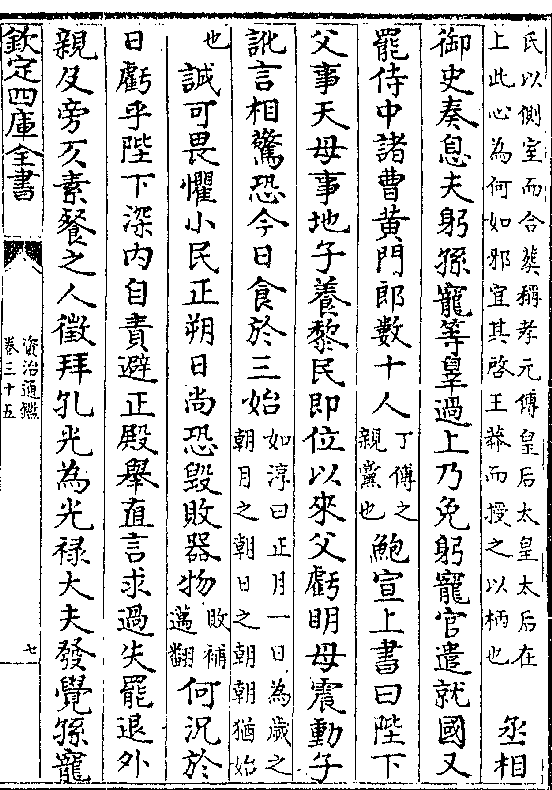 氏以側室而合葬稱孝元傅皇后太皇太后在
上此心為何如邪宜其啓王莽而授之以柄也
丞相
御史奏息夫躬孫寵等辠過上乃免躬寵官遣就國又
罷侍中諸曹黄門郎數十人
丁傅之
親黨也
鮑宣上書曰陛下
父事天母事地子養黎民即位以來父虧明母震動子
訛言相驚恐今日食於三始
如淳曰正月一日為歲之
朝月之朝日之朝朝猶始
也
誠可畏懼小民正朔日尚恐毁敗器物
敗補
邁翻
何況於
日虧乎陛下深内自責避正殿舉直言求過失罷退外
親及旁仄素餐之人徵拜孔光為光禄大夫發覺孫寵
欽定四庫全書
資治通鑑
卷三十五
七